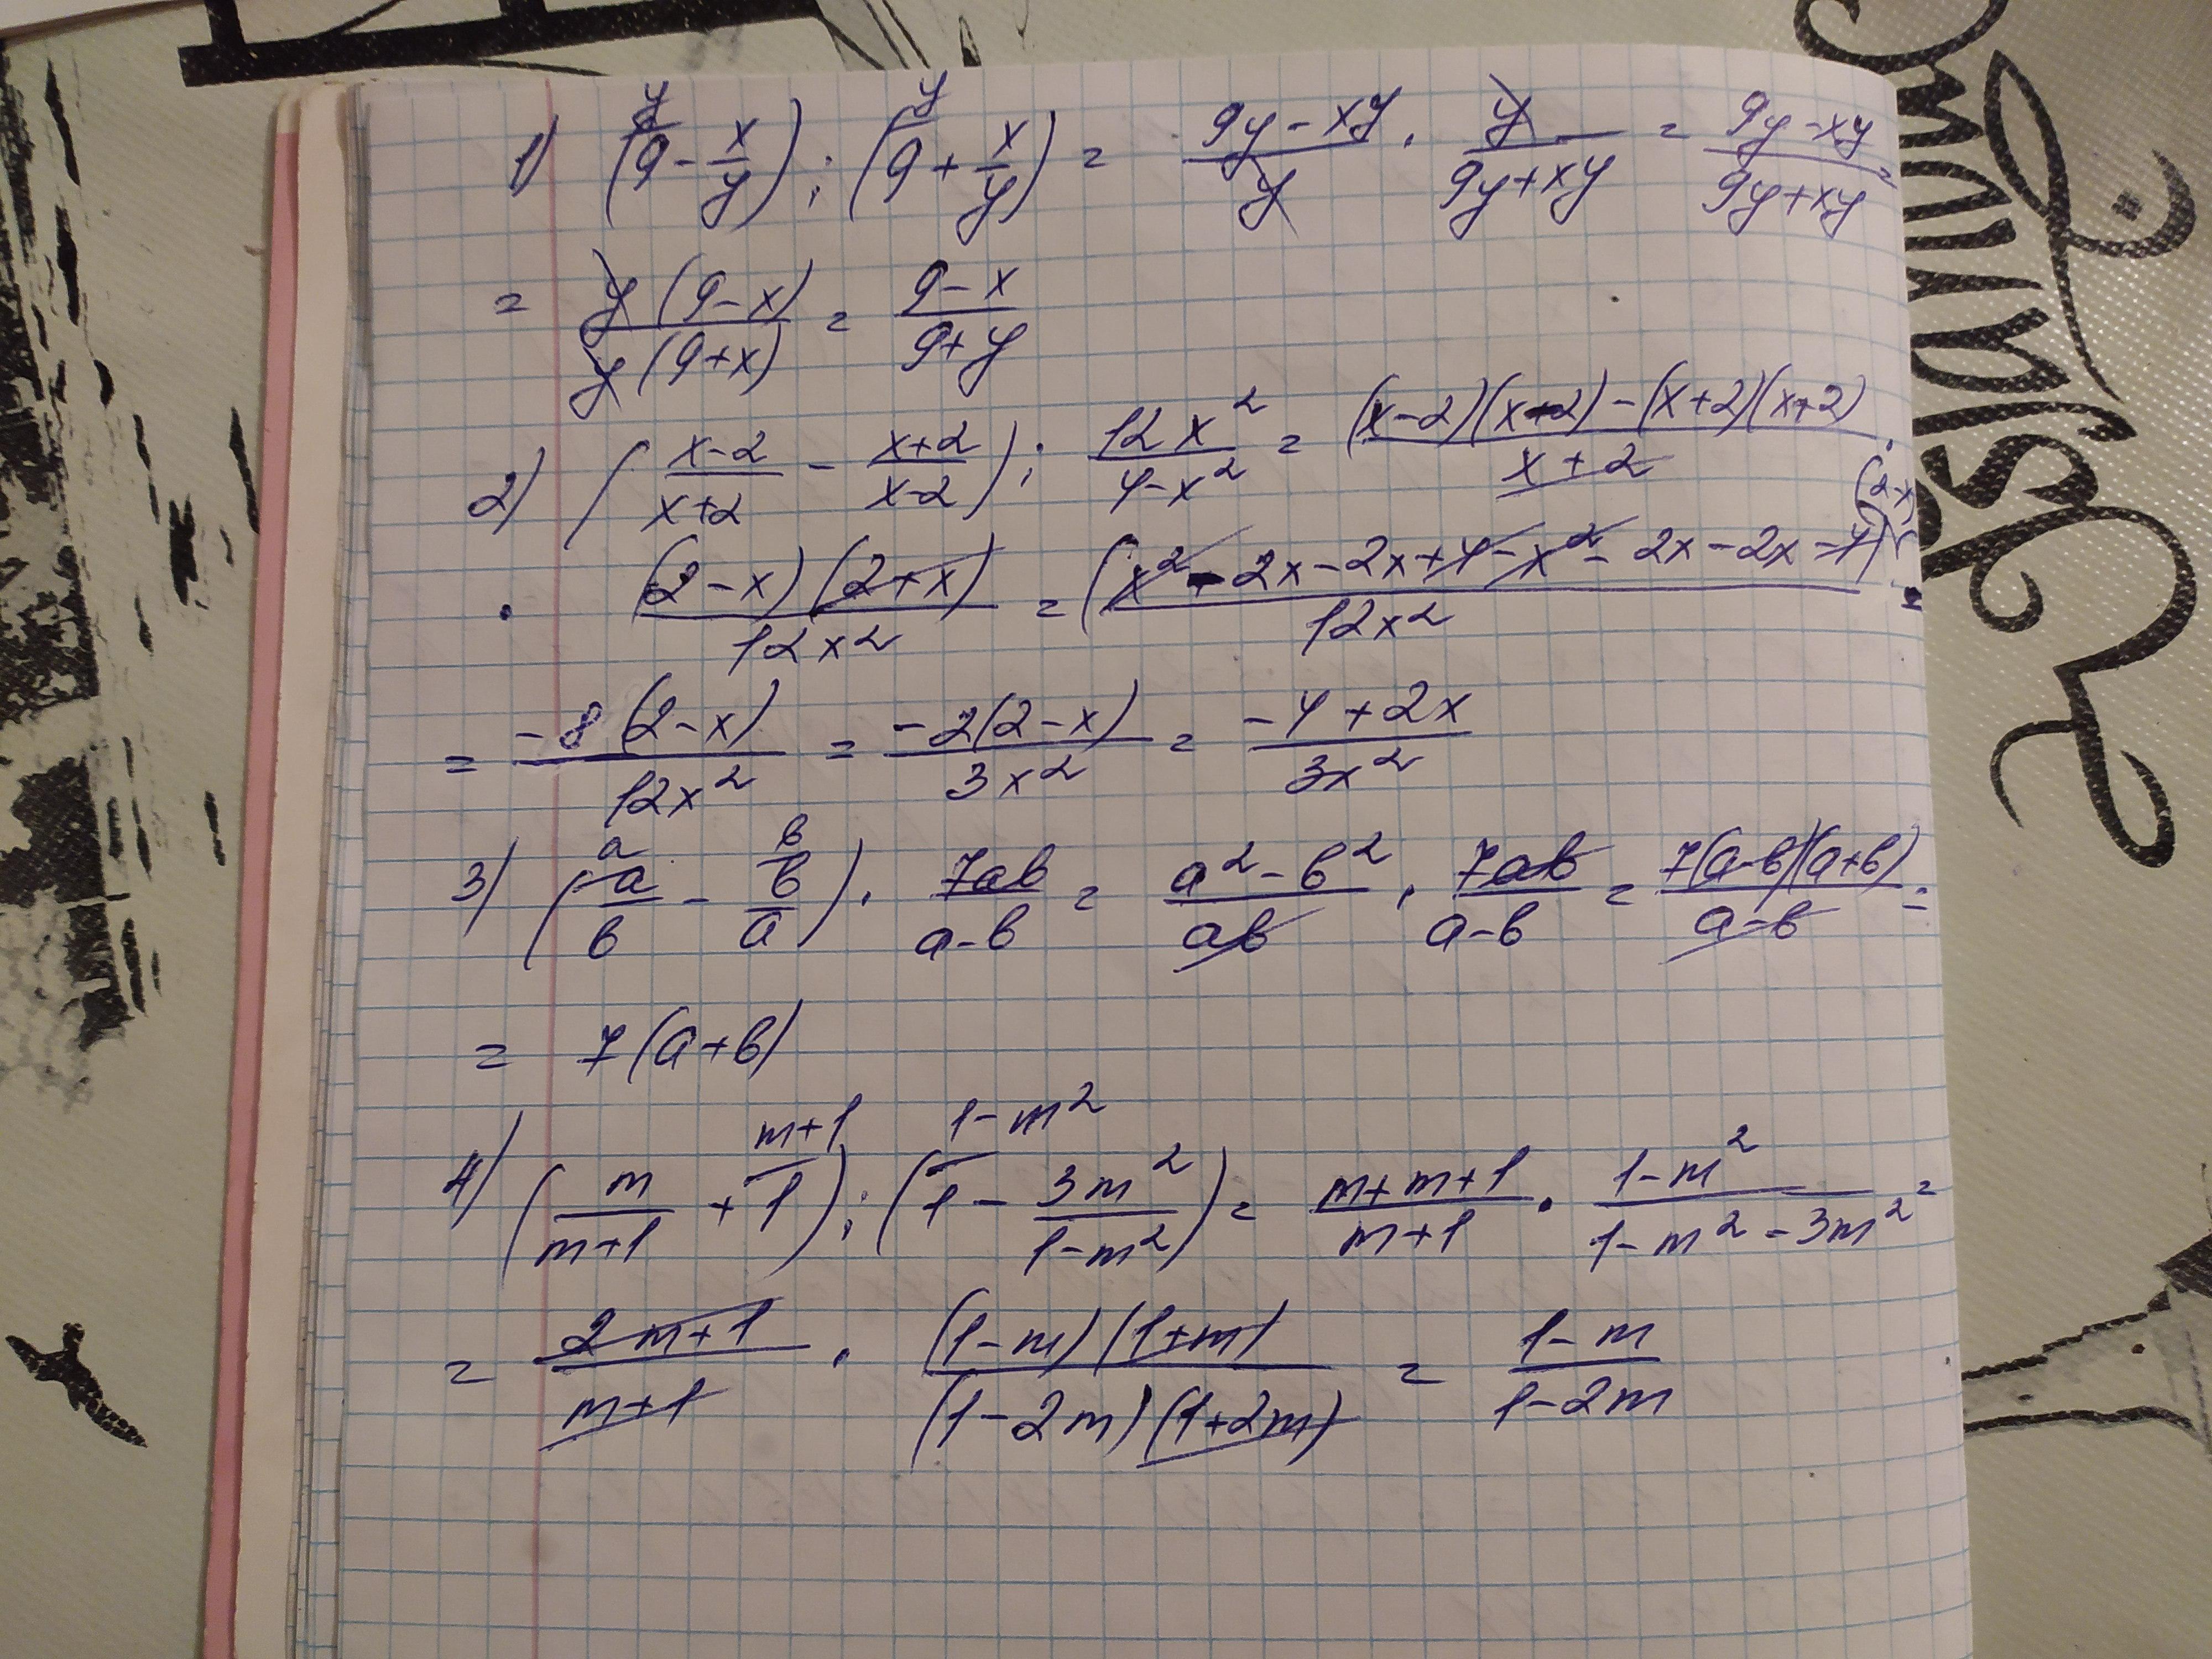 1) (9 - x/y) : (9 + x/y) = (9y - xy)/y · y/(9y + xy) = (9y - xy)/(9y + xy) =
= y(9 - x)/y(9 + x) = (9 - x)/(9 + y)
2) ((x-2)/(x+2) - (x+2)/(x-2)) : 12x²/(4-x²) = ((x-2)(x-2) - (x+2)(x+2))/(x+2) ·
· (2-x)(2+x)/12x² = (x² - 2x - 2x + 4 - x² - 2x - 2x - 4)(2-x)/12x² =
= -8(2-x)/12x² = -2(2-x)/3x² = (-4+2x)/3x²
3) (a/b - b/a) · 7ab/(a-b) = (a² - b²)/ab · 7ab/(a-b) = 7(a-b)(a+b)/(a-b) =
= 7(a+b)
4) (m/(m+1) + 1) : (1 - 3m²/(1-m²)) = (m+m+1)/(m+1) · (1-m²)/(1-m²-3m²) =
= (2m+1)/(m+1) · (1-m)(1+m)/(1-2m)(1+2m) = (1-m)/(1-2m)